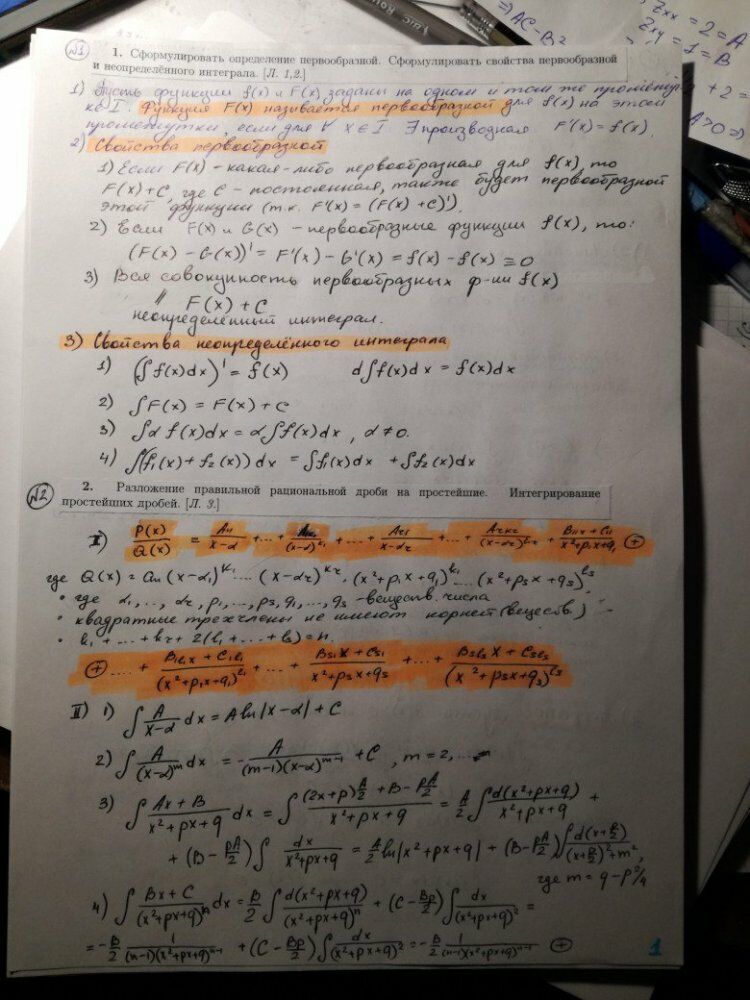 ⇒ AC - B²
Zxx = 2 = A
Zxy = 1 = B
+ 2 =
A>0 ⇒
№1
1. Сформулировать определение первообразной. Сформулировать свойства первообразной
и неопределённого интеграла. [Л. 1,2.]
1) Пусть функции f(x) и F(x) заданы на одном и том же промежут-
ке I. Функция F(x) называется первообразной для f(x) на этом
промежутки, если для ∀ x∈I ∃ производная F'(x) = f(x).
2) Свойства первообразной
1) Если F(x) - какая-либо первообразная для f(x), то
F(x)+C, где C - постоянная, также будет первообразной
этой функции (т.к. F'(x) = (F(x) + C)').
2) Если F(x) и G(x) - первообразные функции f(x), то:
(F(x) - G(x))' = F'(x) - G'(x) = f(x) - f(x) ≡ 0
3) Вся совокупность первообразных ф-ии f(x)
// F(x) + C
неопределённый интеграл.
3) Свойства неопределённого интеграла
1) (∫f(x)dx)' = f(x) d∫f(x)dx = f(x)dx
2) ∫F(x) = F(x) + C
3) ∫α f(x)dx = α∫f(x)dx, α≠0.
4) ∫(f₁(x) + f₂(x))dx = ∫f₁(x)dx + ∫f₂(x)dx
№2
2. Разложение правильной рациональной дроби на простейшие. Интегрирование
простейших дробей. [Л. 3.]
I) P(x)/Q(x) = A₁₁/(x-α) + ... + /(x-α)^k₁ + ... + Ar1/(x-αr) + ... + Arkr/(x-αr)^kr + (B₁₁x + C₁₁)/(x²+p₁x+q₁) ⊕
где Q(x) = an(x-α₁)^k₁ .... (x-αr)^kr · (x²+p₁x+q₁)^l₁ .... (x²+psx+qs)^ls
• где α₁,..., αr, p₁,..., ps, q₁,..., qs - веществ. числа
• квадратные трехчлены не имеют корней (веществ.)
• k₁ + ... + kr + 2(l₁ + ... + ls) = n.
⊕ .... + (B₁l₁x + C₁l₁)/(x²+p₁x+q₁)^l₁ + ... + (Bs₁x + Cs₁)/(x²+psx+qs) + ... + (Bslsx + Csls)/(x²+psx+qs)^ls
II) 1) ∫A/(x-α) dx = A ln|x-α| + C
2) ∫A/(x-α)^m dx = -A/((m-1)(x-α)^(m-1)) + C, m = 2, ...
3) ∫(Ax + B)/(x²+px+q) dx = ∫((2x+p)A/2 + B - pA/2)/(x²+px+q) = A/2 ∫d(x²+px+q)/(x²+px+q) +
+ (B - pA/2)∫dx/(x²+px+q) = A/2 ln|x²+px+q| + (B - pA/2)∫d(x+p/2)/((x+p/2)²+m²,
где m = q - p²/4
4) ∫(Bx + C)/(x²+px+q)^n dx = B/2 ∫d(x²+px+q)/(x²+px+q)^n + (C - Bp/2)∫dx/(x²+px+q)² =
= -B/2 1/((n-1)(x²+px+q)^(n-1)) + (C - Bp/2)∫dx/(x²+px+q)² = -B/2 1/((n-1)(x²+px+q)^(n-1)) ⊕
1